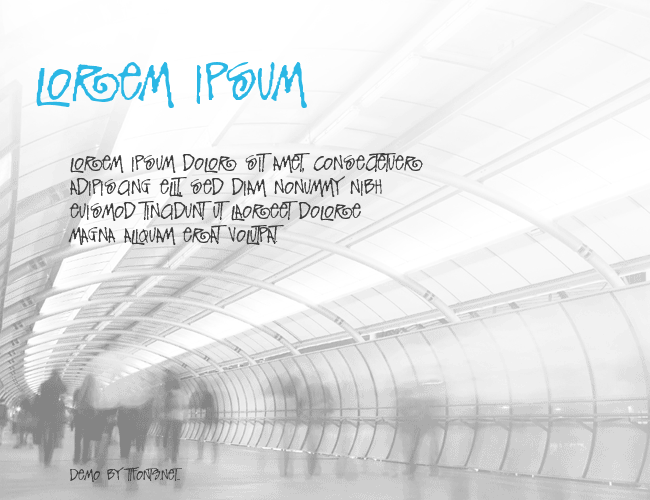 LOREM IPSUM
LOREM IPSUM DOLOR SIT AMET, CONSECTETUER
ADIPISCING ELIT, SED DIAM NONUMMY NIBH
EUISMOD TINCIDUNT UT LAOREET DOLORE
MAGNA ALIQUAM ERAT VOLUTPAT.
DEMO BY TTFONTS.NET